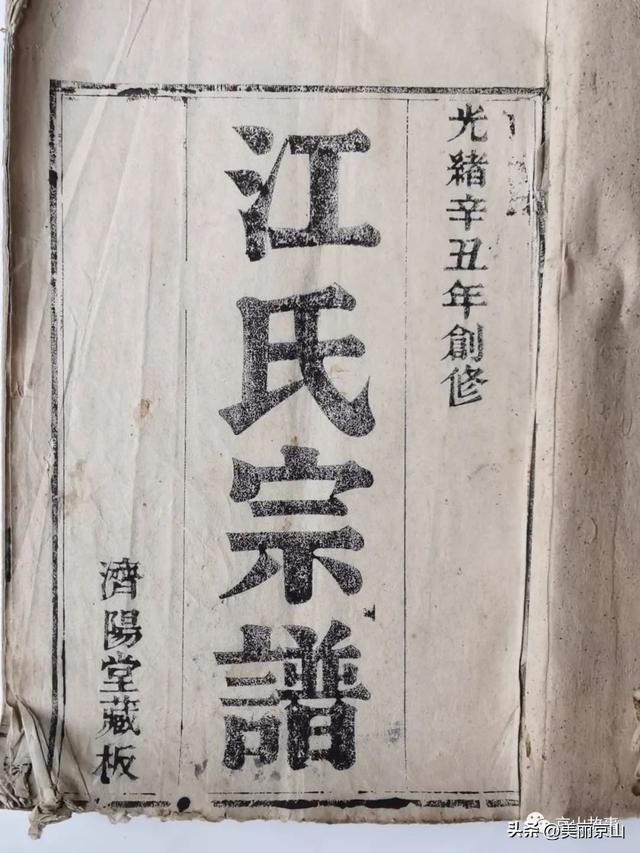 光緒辛丑年創修
江氏宗譜
濟陽堂藏板
京山故事
头条@美丽京山